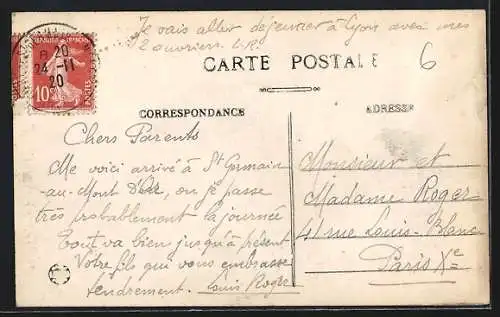 Je vais aller déjeuner à Lyon avec mes
2 ouvriers L.R.
CARTE POSTALE
6
CORRESPONDANCE
ADRESSE
20
24 -11
20
10
Chers Parents
Me voici arrivé à St Germain
-au-Mont d'Or, ou je passe
très probablement la journée
Tout va bien jusqu'à présent
Votre fils qui vous embrasse
tendrement. Louis Roger
Monsieur et
Madame Roger
41 rue Louis-Blanc
Paris Xe